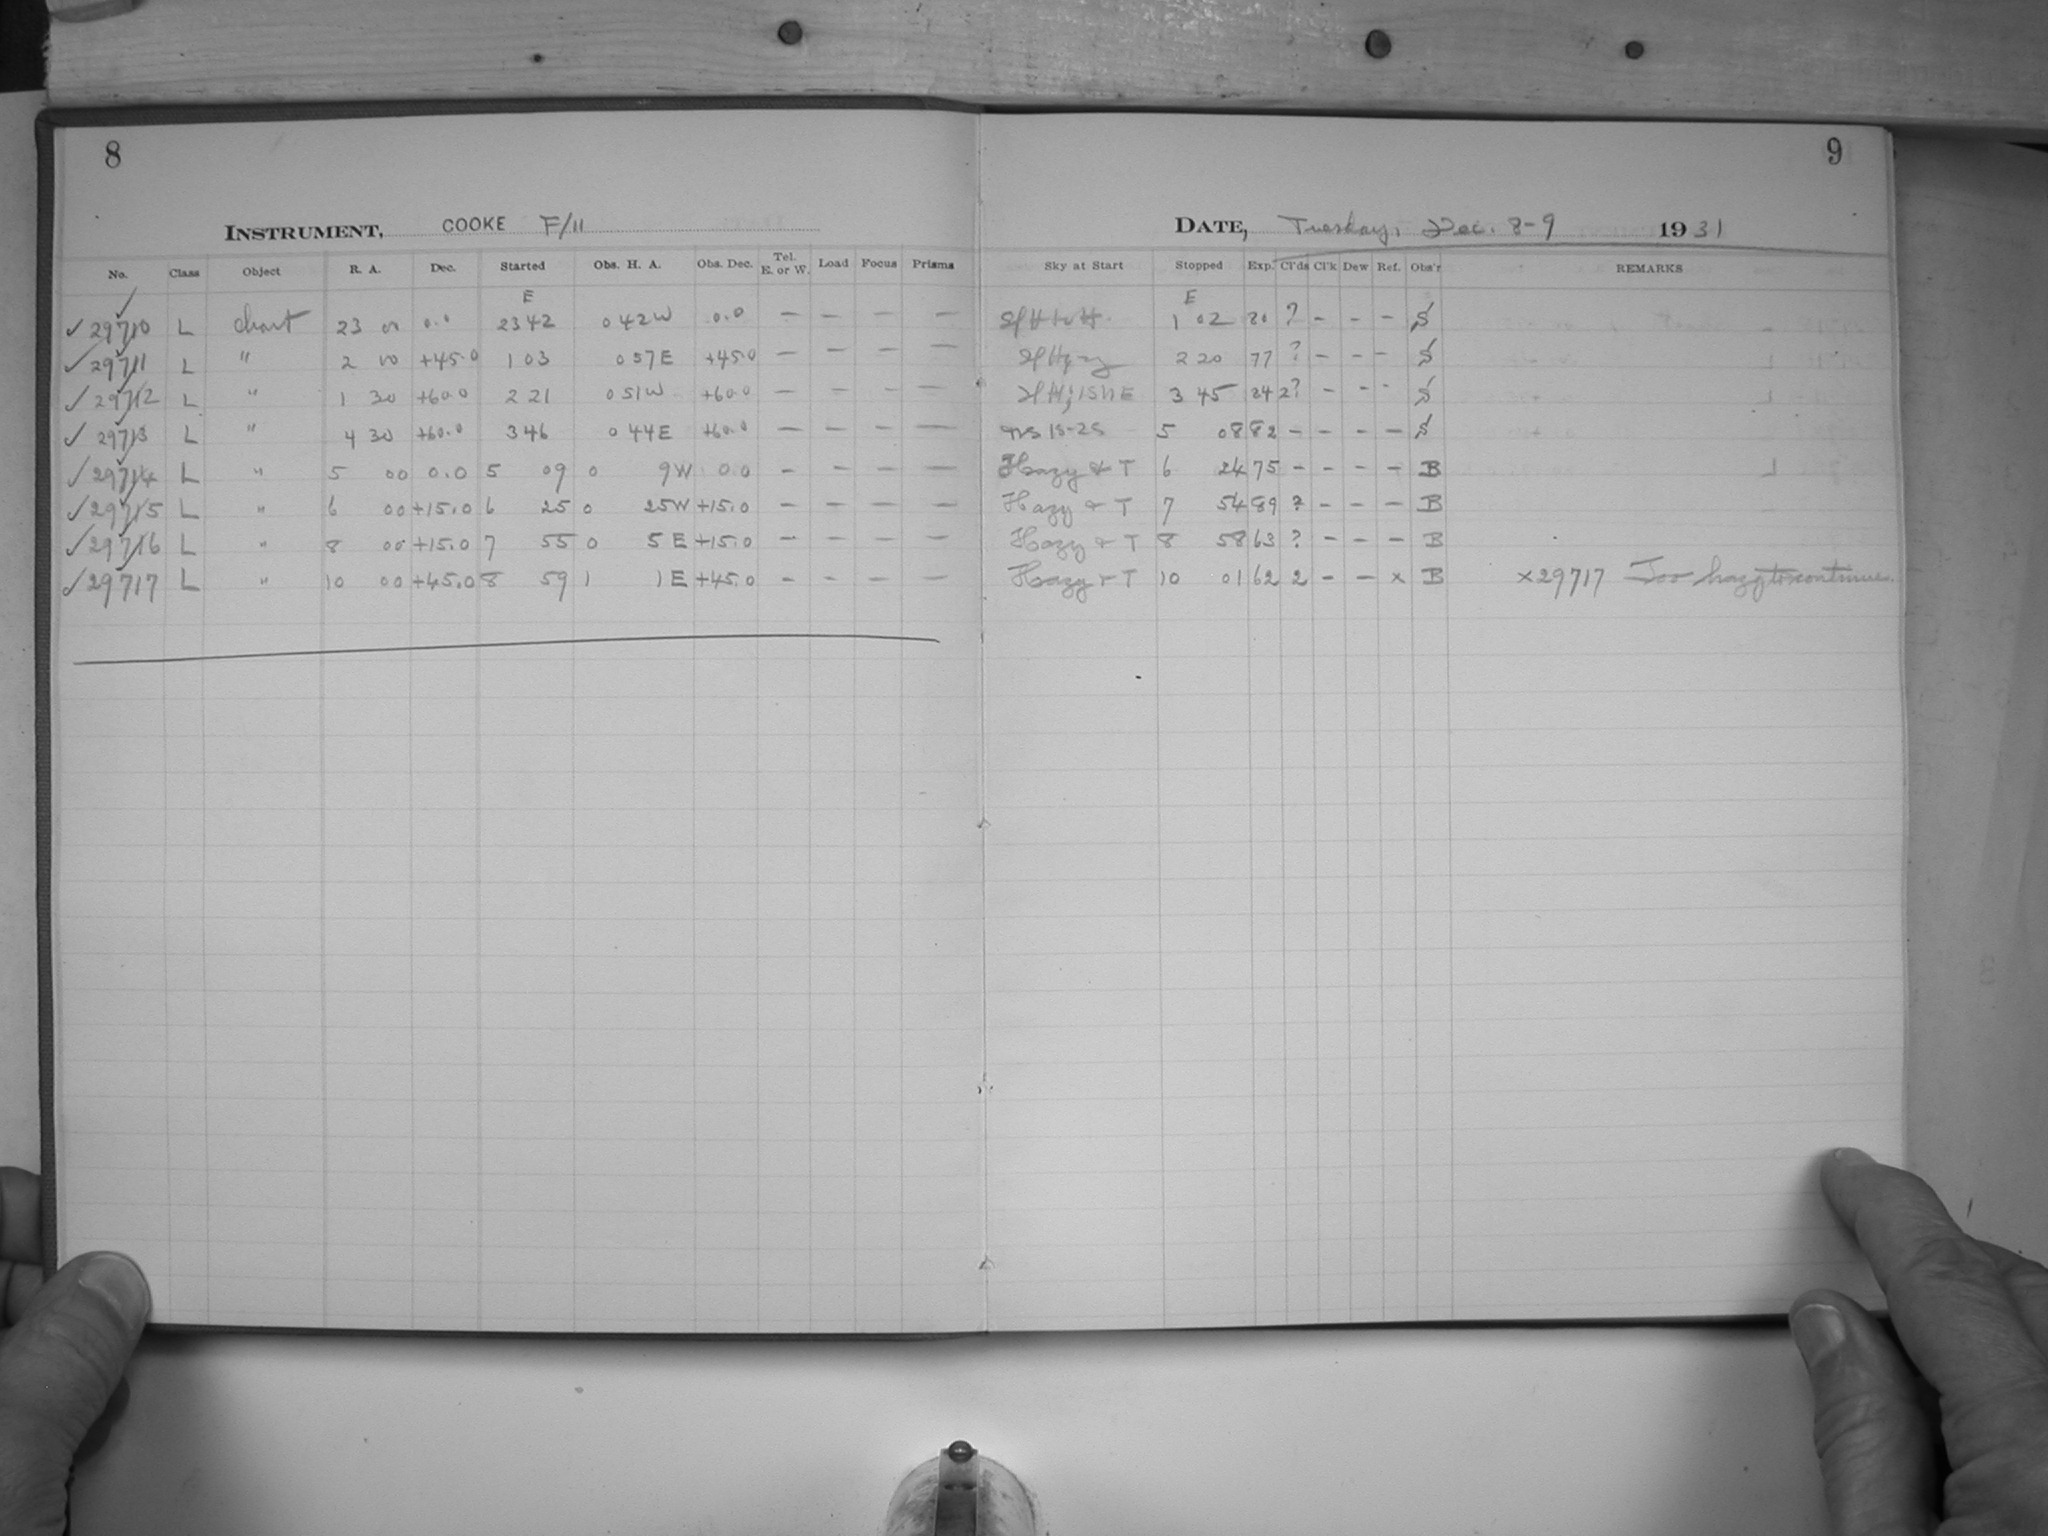 8
INSTRUMENT, COOKE F/11
No. Class Object R. A. Dec. Started Obs. H. A. Obs. Dec. Tel. E. or W. Load Focus Prisms
E
✓ 29710 L chart 23 00 0.0 23 42 0 42 W 0.0 – – – – –
✓ 29711 L " 2 00 +45.0 1 03 0 57 E +45.0 – – – –
✓ 29712 L " 1 30 +60.0 2 21 0 51 W +60.0 – – – –
✓ 29713 L " 4 30 +60.0 3 46 0 44 E +60.0 – – – –
✓ 29714 L " 5 00 0.0 5 09 0 9 W 0.0 – – – –
✓ 29715 L " 6 00 +15.0 6 25 0 25 W +15.0 – – – –
✓ 29716 L " 8 00 +15.0 7 55 0 5 E +15.0 – – – –
✓ 29717 L " 10 00 +45.0 8 59 1 1 E +45.0 – – – –
9
DATE, Tuesday, Dec. 8-9 1931
Sky at Start Stopped Exp. Cl'ds Cl'k Dew Ref. Obs'r REMARKS
E
1 02 80 ? – – – S
2 20 77 ? – – – S
3 45 84 2? – – – S
1S-2S 5 08 82 – – – – S
Hazy & T 6 24 75 – – – – B
Hazy & T 7 54 89 ? – – – B
Hazy & T 8 58 63 ? – – – B
Hazy & T 10 01 62 2 – – x B x29717 Too hazy to continue.